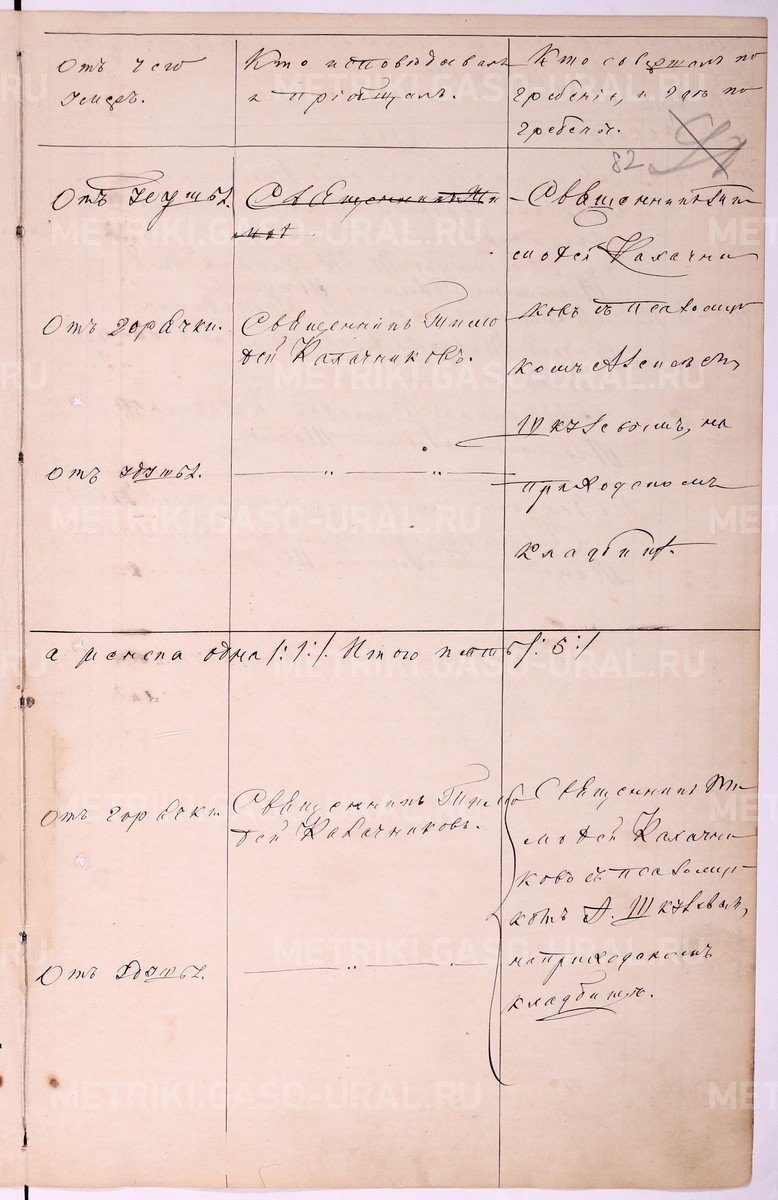 Отъ чего
умеръ.
Кто исповѣдывалъ
и пріобщалъ.
Кто совершалъ по
гребеніе, и гдѣ по
гребены.
82
Отъ удушья.
Священникъ Ти
моѳ
Священникъ Ти
моѳей Калачни
ковъ съ псаломщи
комъ Алексѣемъ
Шкулевымъ, на
приходскомъ
кладбищѣ.
Отъ горячки.
Священникъ Тимо
ѳей Калачниковъ.
Отъ удушья.
— „ — „ —
а женска одна /:1:/. Итого пять /:5:/
Отъ горячки.
Священникъ Тимо
ѳей Калачниковъ.
Отъ удушья.
— „ — .
Священникъ Ти
моѳей Калачни
ковъ съ псаломщи
комъ А. Шкулевым,
на приходскомъ
кладбищѣ.
METRIKI.GASO-URAL.RU